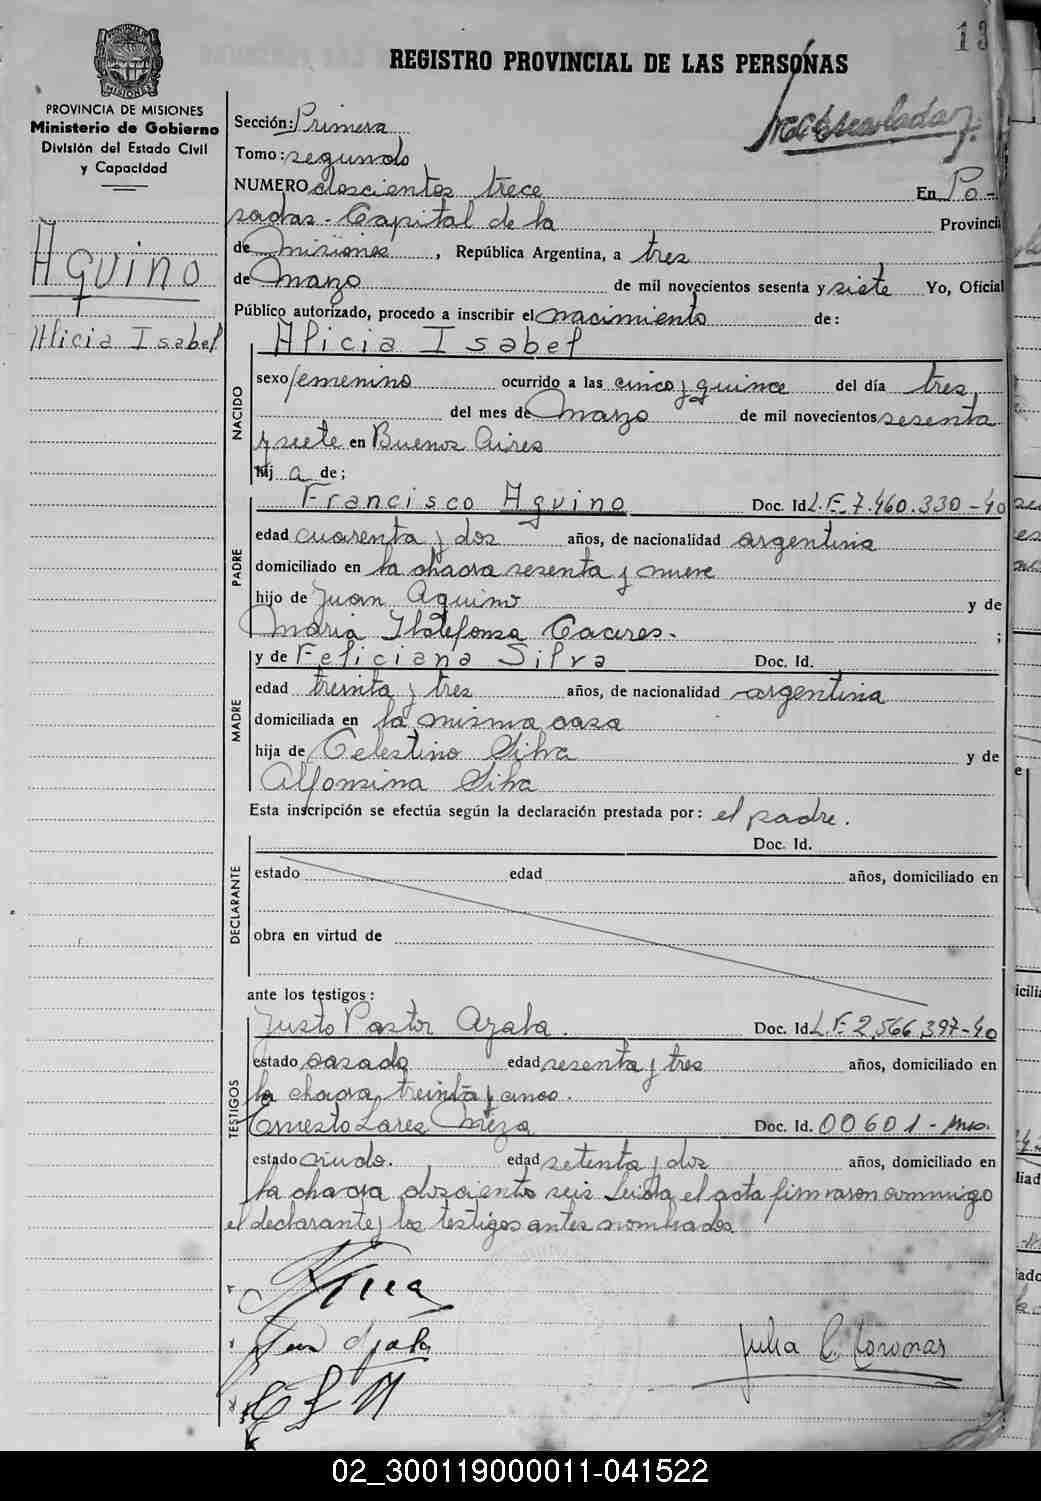 13
REGISTRO PROVINCIAL DE LAS PERSONAS
MISIONES
PROVINCIA DE MISIONES
Ministerio de Gobierno
División del Estado Civil
y Capacidad
Aquino
Alicia Isabel
Sección: Primera
Tomo: segundo
NUMERO doscientos trece En Po-
sadas - Capital de la Provincia
de Misiones, República Argentina, a tres
de Marzo de mil novecientos sesenta y siete Yo, Oficial
Público autorizado, procedo a inscribir el nacimiento de:
Alicia Isabel
NACIDO
sexo femenino ocurrido a las cinco y quince del día tres
del mes de Marzo de mil novecientos sesenta
y siete en Buenos Aires
hij a de;
PADRE
Francisco Aquino Doc. Id. L.E. 7.460.330-40
edad cuarenta y dos años, de nacionalidad argentina
domiciliado en la chacra sesenta y nueve
hijo de Juan Aquino y de
Maria Ildefonsa Caceres. ;
MADRE
y de Feliciana Silva Doc. Id.
edad treinta y tres años, de nacionalidad argentina
domiciliada en la misma casa
hija de Celestino Silva y de
Alfonsina Silva
Esta inscripción se efectúa según la declaración prestada por: el padre.
DECLARANTE
Doc. Id.
estado edad años, domiciliado en
obra en virtud de
ante los testigos:
TESTIGOS
Justo Pastor Ayala. Doc. Id. L.E. 2.566.397-40
estado casado edad sesenta y tres años, domiciliado en
la chacra treinta y cinco.
Ernesto Lares Meza Doc. Id. 00601-Mnes.
estado viudo. edad setenta y dos años, domiciliado en
la chacra doscientos seis Leida el acta firmaron conmigo
el declarante y los testigos antes nombrados
Julia C. Coronas
02_300119000011-041522